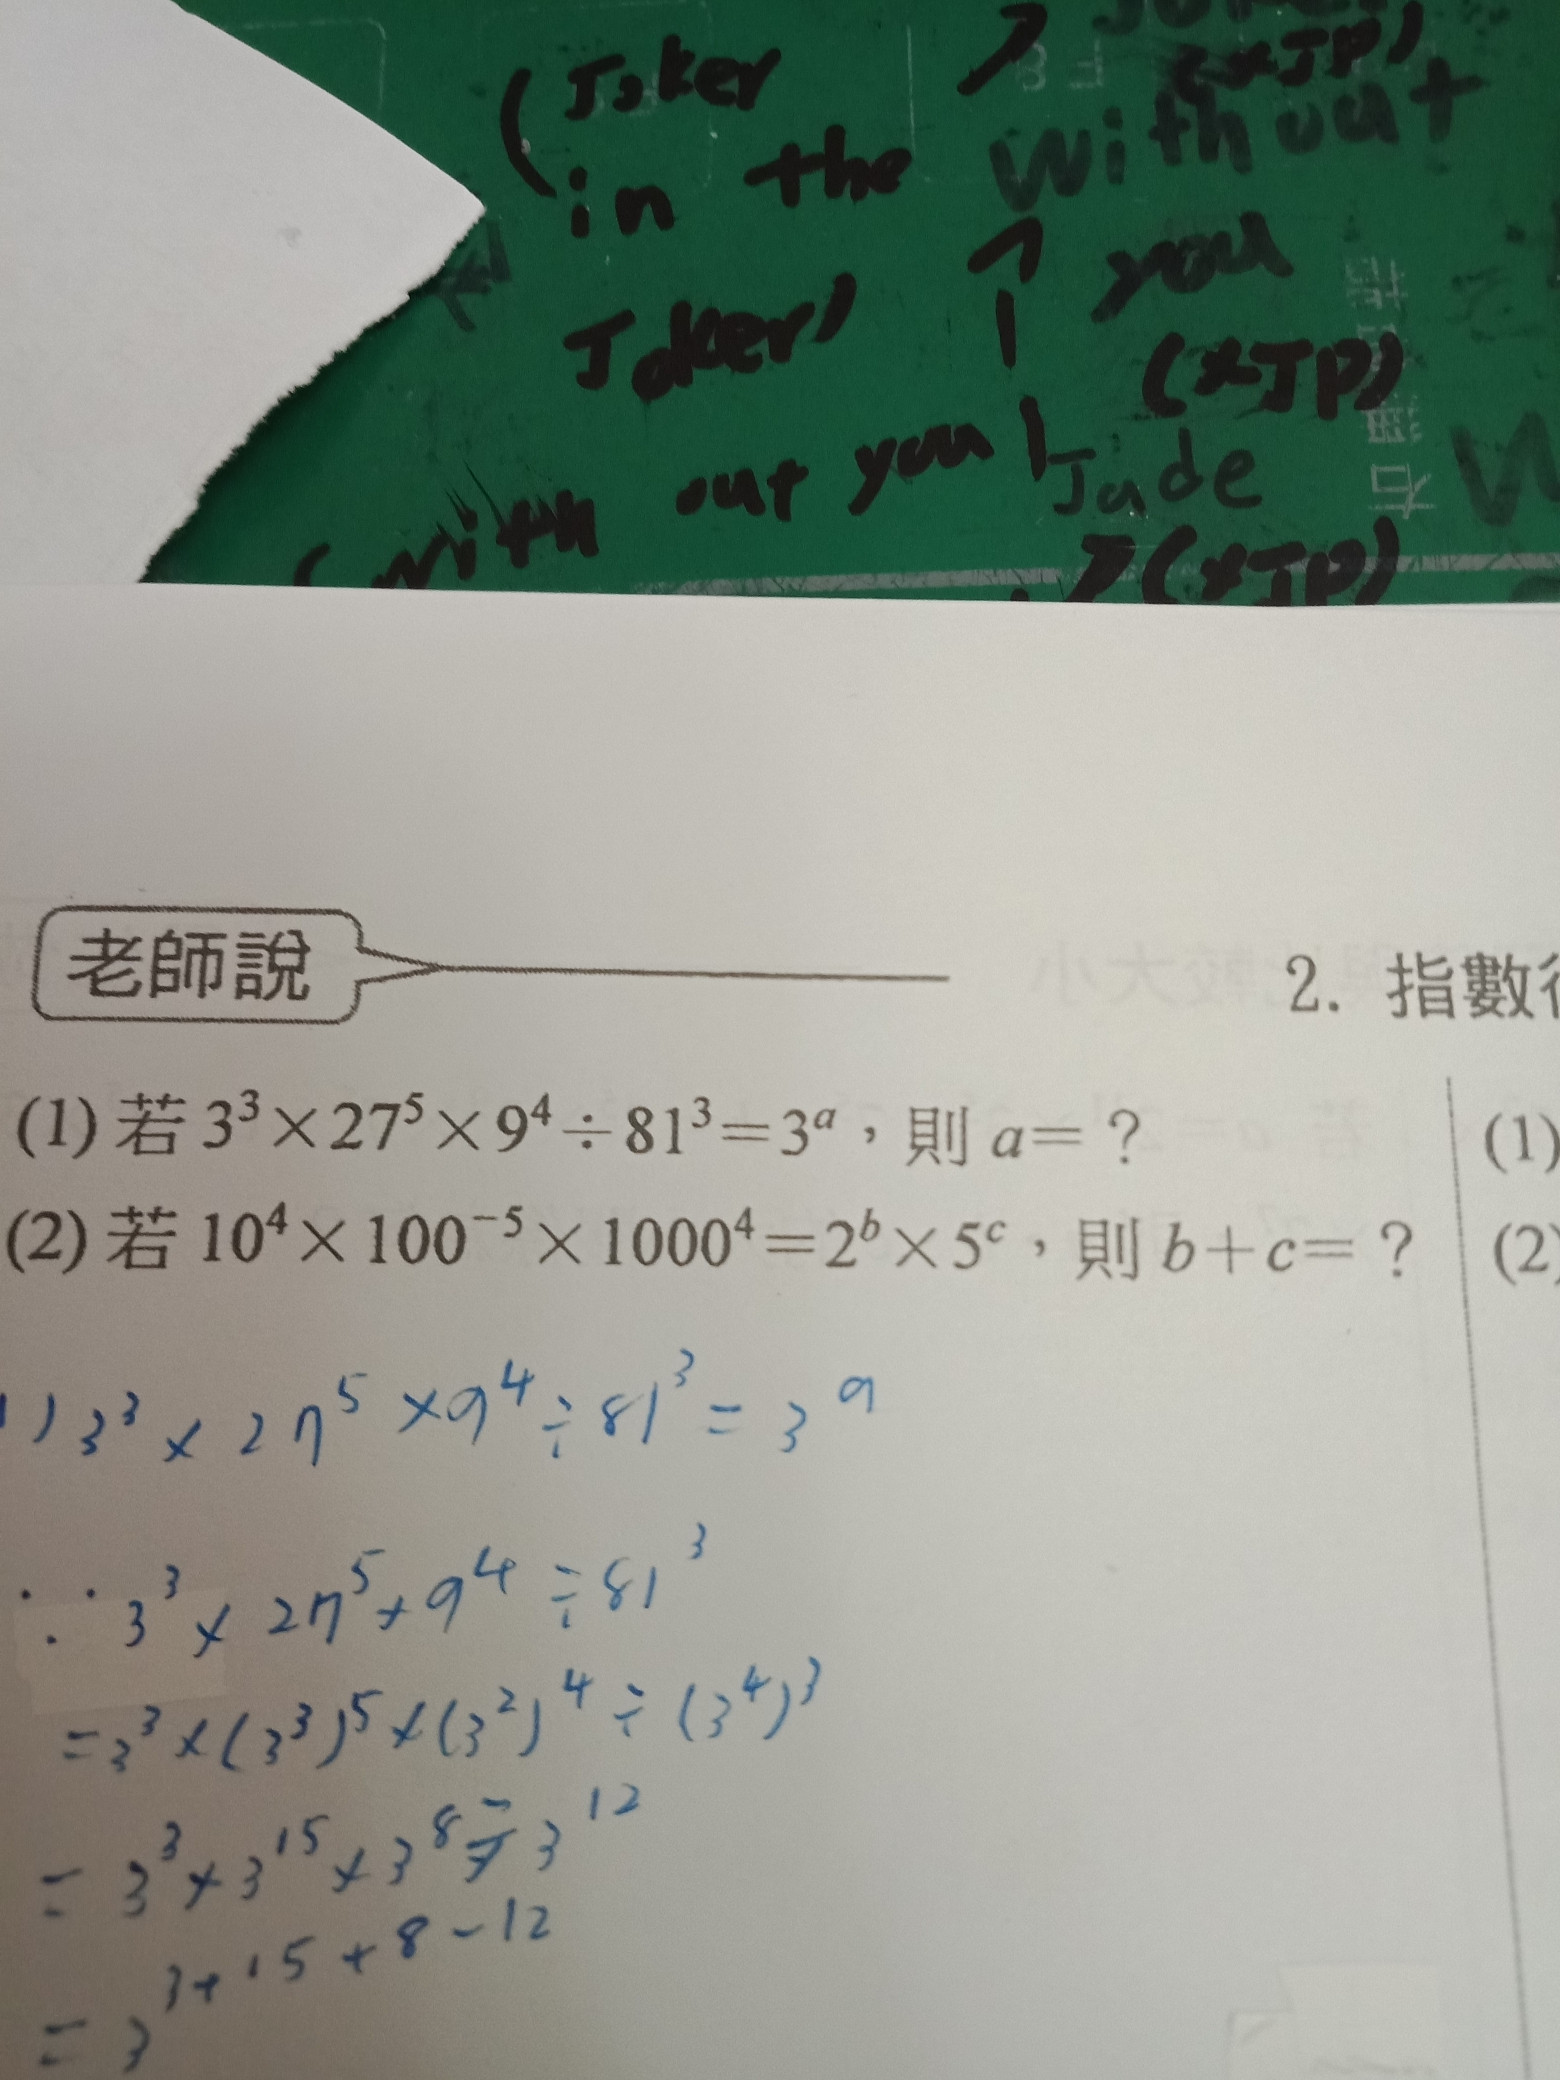 (Joker
in the
Joker)
(xJP)
without
you
(xJP)
with out you
Jade
(xJP)
老師說
2. 指數
(1) 若 3³×27⁵×9⁴÷81³=3ᵃ,則 a=?
(2) 若 10⁴×100⁻⁵×1000⁴=2ᵇ×5ᶜ,則 b+c=?
(1)
(2)
1) 3³×27⁵×9⁴÷81³=3ᵃ
∵ 3³×27⁵×9⁴÷81³
=3³×(3³)⁵×(3²)⁴÷(3⁴)³
=3³×3¹⁵×3⁸÷3¹²
=3³⁺¹⁵⁺⁸⁻¹²